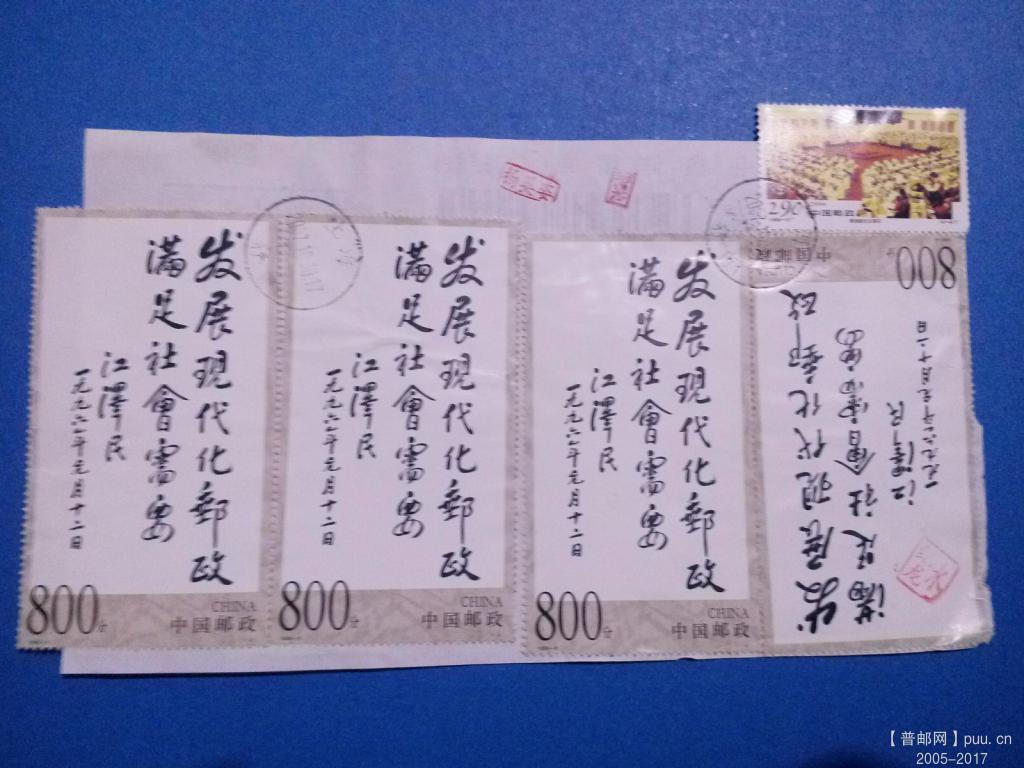 发展现代化郵政
满足社會需要
江澤民
一九九六年元月十二日
800分
CHINA
中国邮政
发展现代化郵政
满足社會需要
江澤民
一九九六年元月十二日
800分
CHINA
中国邮政
发展现代化郵政
满足社會需要
江澤民
一九九六年元月十二日
800分
CHINA
中国邮政
中国邮政
800分
发展现代化郵政
满足社會需要
江澤民
一九九六年元月十二日
中国邮政
【普邮网】puu.cn
2005-2017